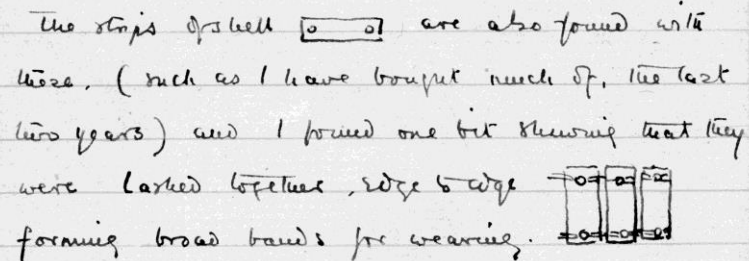 The strips of shell are also found with
these, (such as I have bought much of, the last
two years) and I found one bit shewing that they
were lashed together, edge to edge
forming broad bands for wearing.